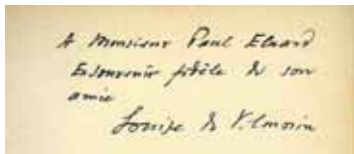 A Monsieur Paul Eluard
En souvenir fidèle de son
amie
Louise de Vilmorin